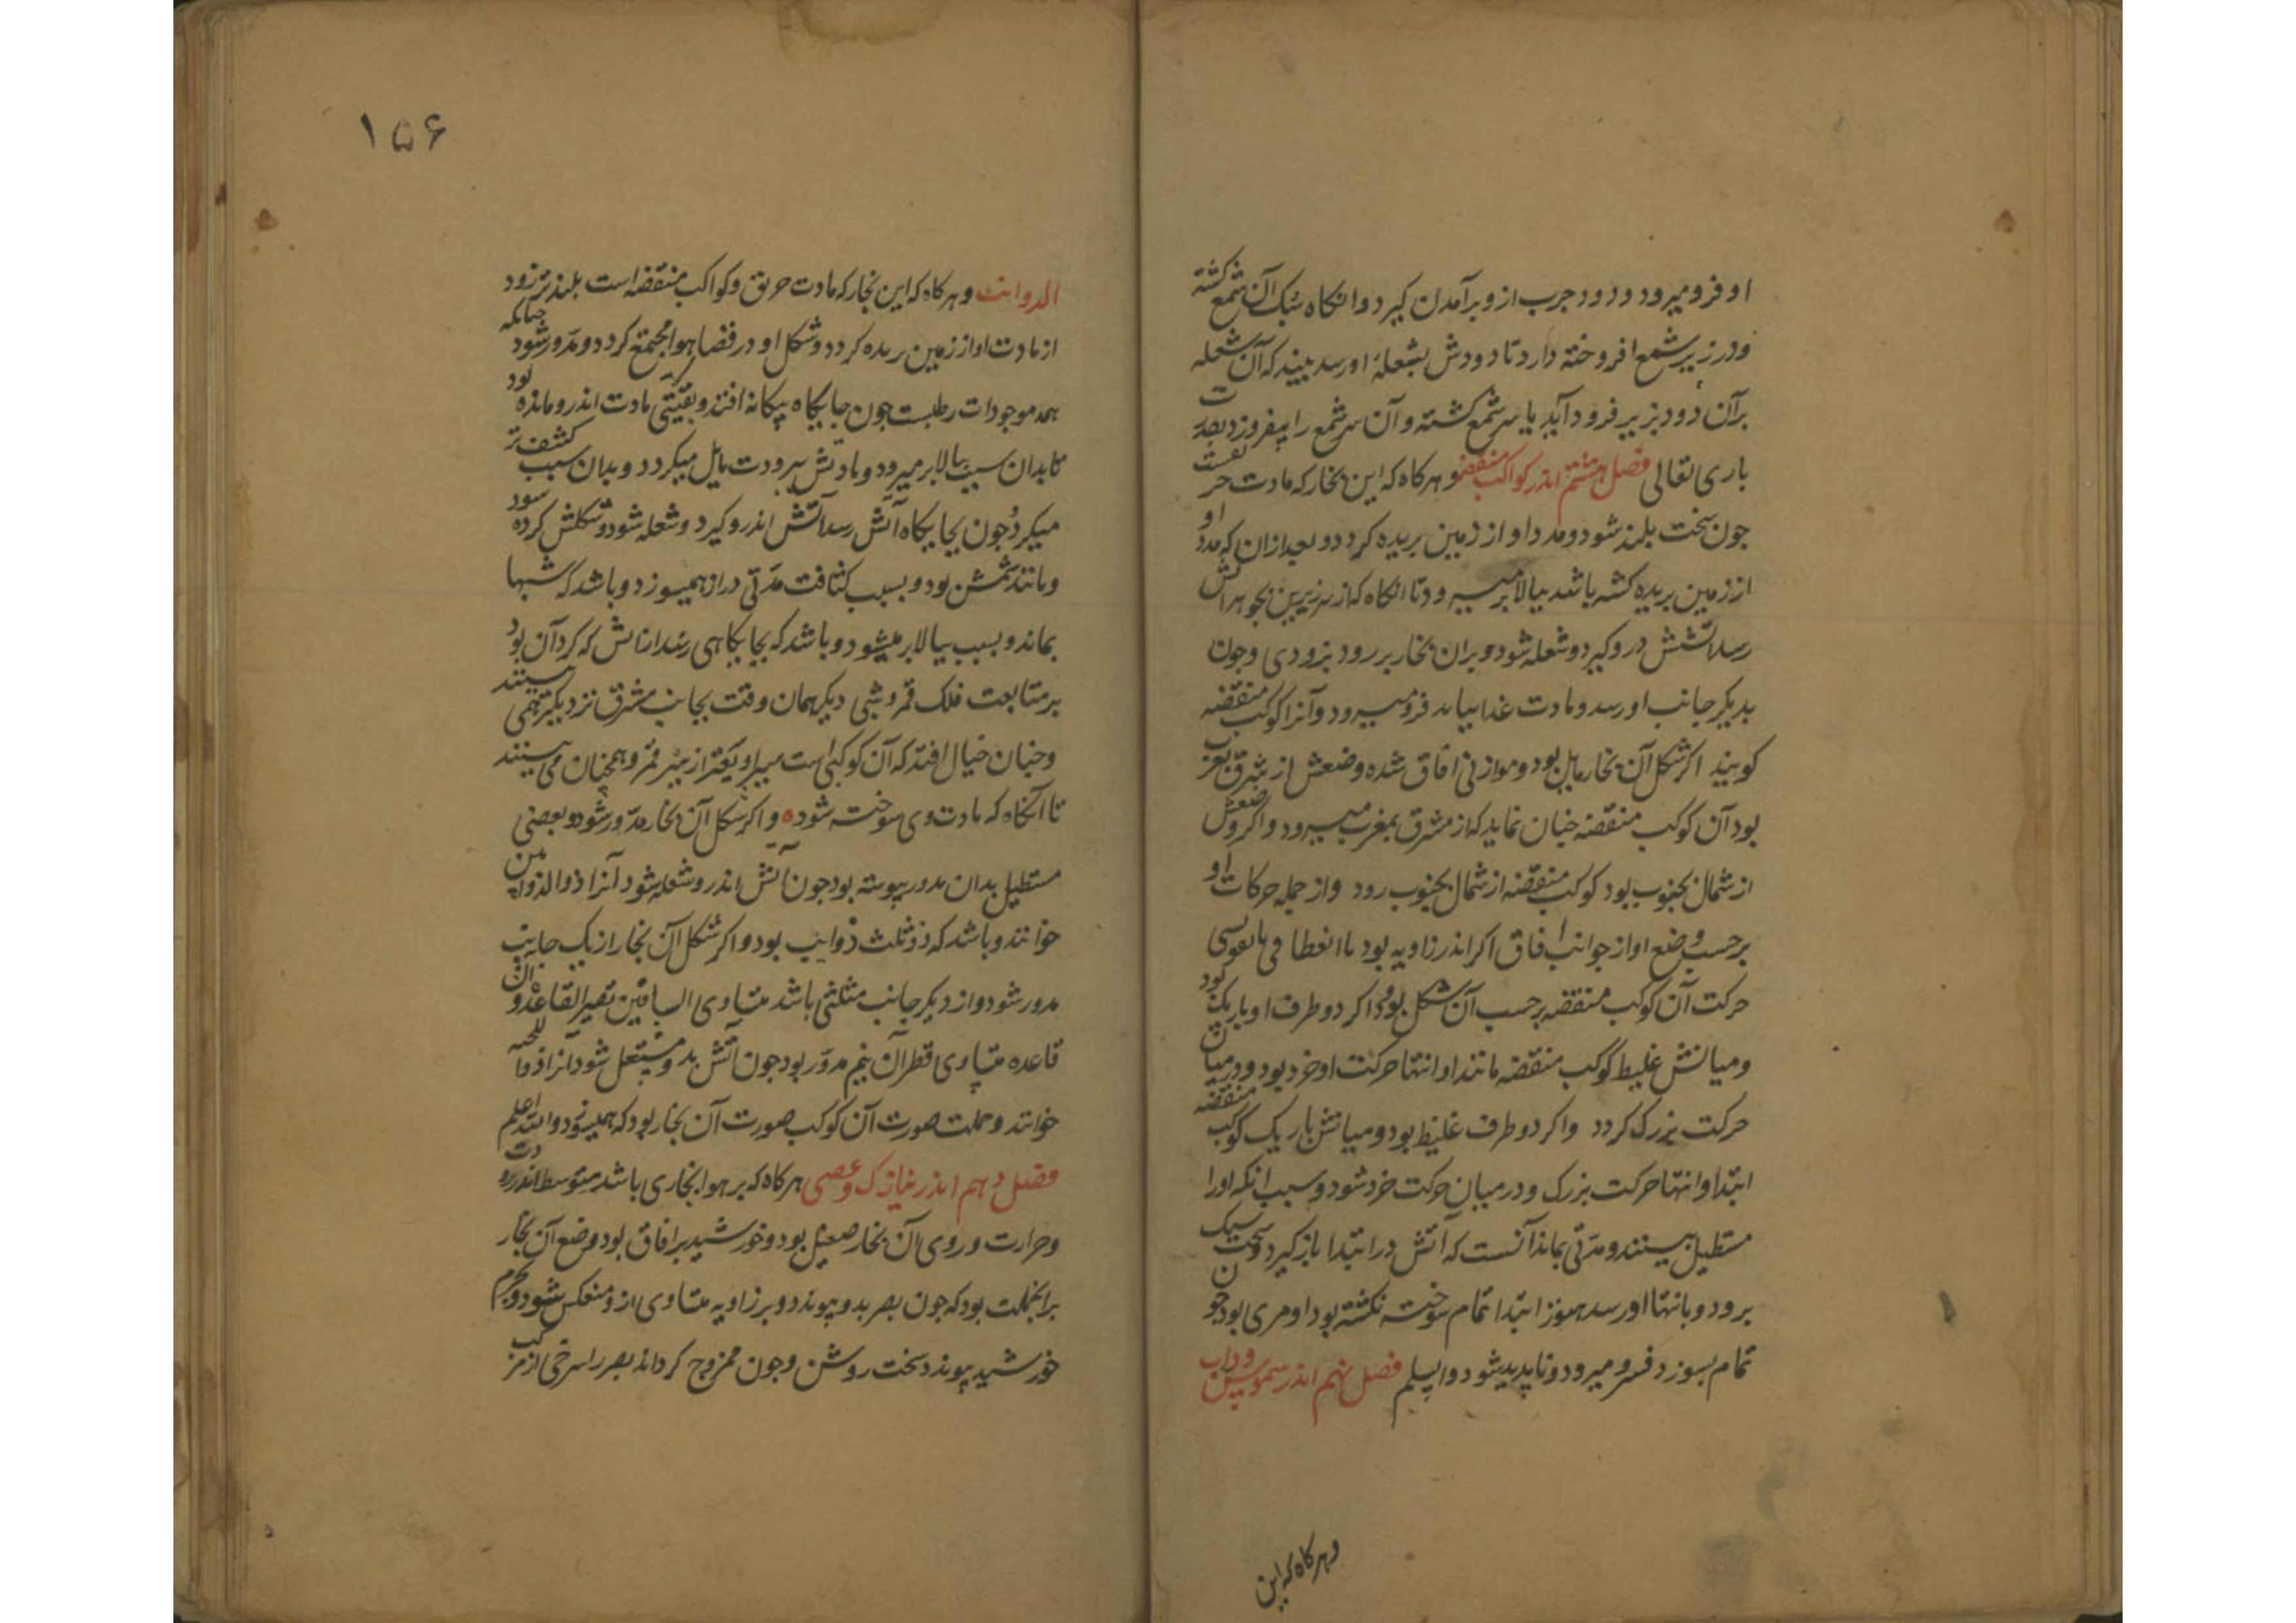 او فرو میرود و دود جرب ازو برآمدن کیرد و انکاه سبک آن شمع کشته
و در زیر شمع افروخته دارد تا دودش بشعلۀ او رسد بیند که آن شعله
بر آن دود بزیر فرود آید با سر شمع کشته و آن سر شمع را بیفروزد بقدرت
باری تعالی فصل هشتم اندر کواکب منقضه و هر کاه که این بخار که مادت حر یقست
جون سخت بلند شود و مدد او از زمین بریده کردد و بعد از ان که مدد او
از زمین بریده کشته باشد ببالا بر میرود تا انکاه که از سر زیرین بجوهر آتش
رسد آتش در و کیرد و شعله شود و بران بخار بر رود بزودی و جون
بدیکر جانب او رسد و مادت غذا نیابد فرو میرود و آنرا کوکب منقضه
کویند اکر شکل آن بخار مایل بود و موازنی افاق شده وضعش از شرق بغرب
بود آن کوکب منقضه جنان نماید که از مشرق بمغرب میرود و اکر وضعش
از شمال بجنوب بود کوکب منقضه از شمال بجنوب رود و از جمله حرکات او
بر حسب وضع او از جوانب افاق اکر اندر زاویه بود با انعطافی با تقوسی
حرکت آن کوکب منقضه بر حسب آن شکل بود و اکر دو طرف او باریک بود
و میانش غلیظ کوکب منقضه مانند او انتها حرکت او خرد بود و در میان
حرکت بزرک کردد و اکر دو طرف غلیظ بود و میانش باریک کوکب منقضه
ابتدا و انتها حرکت بزرک و در میان حرکت خرد شود و سبب انکه او را
مستطیل بینند و مدتی بماند آنست که آتش در ابتدا باز کیرد و سخت سبک
برود و بانتها او رسد هنوز ابتدا تمام سوخته نکشته بود او مری بود جون
تمام بسوزد فرو میرود و ناپدید شود و السلم فصل نهم اندر شموس و ذوات
و هر کاه که این
۱۵۶
الدوانب و هر کاه که این بخار که مادت حریق و کواکب منقضه است بلند تر رود
از مادت او از زمین بریده کردد و شکل او در فضا هوا مجتمع کردد و مدور شود جنانکه
همه موجودات رطبست جون جایکاه بیکانه افتد و بقیتی مادت اندرو مانده بود
تا بدان سبب ببالا بر میرود و مادتش ببرودت مایل میکردد و بدان سبب کثیف تر
میکردد جون بجایکاه آتش رسد آتش اندرو کیرد و شعله شود و شکلش کرده شود
و مانند شمش بود و بسبب کثافت مدتی دراز همیسوزد و باشد که شبها
بماند و بسبب ببالا بر میشود و باشد که بجایکاهی رسد از اتش که کرد آن بود
بر متابعت فلک قمر و شبی دیکر همان وقت بجانب مشرق نزدیکتر همی بینند
و جنان خیال افتد که آن کوکبی است سیر او بقیتر از سیر قمر و همجنان می بینند
تا آنکاه که مادت وی سوخته شود و اکر شکل آن بخار مدور شود و بعضی
مستطیل بدان مدور پیوسته بود جون آتش اندرو شعله شود آنرا ذو الذوابین
خوانند و باشد که ذو ثلث ذوایب بود و اکر شکل آن بخار از یک جانب
مدور شود و از دیکر جانب مثلثی باشد متساوی الساقین قصیر القاعده و آن
قاعده متساوی قطر آن نیم مدور بود جون آتش بدو مشتعل شود آنرا ذو اللحیه
خوانند و جملت صورت آن کوکب صورت آن بخار بود که همیسوزد و الله اعلم
فصل دهم اندر نیازک و عصی هر کاه که بر هوا بخاری باشد متوسط اندر برودت
و حرارت و روی آن بخار صقیل بود و خورشید بر افاق بود و وضع آن بخار
بر انجملت بود که جون بصر بدو پیوندد و بر زاویه متساوی ازو منعکس شود و بجرم
خورشید پیوندد سخت روشن و جون ممزوج کرداند بصر را سرخی از مرکب